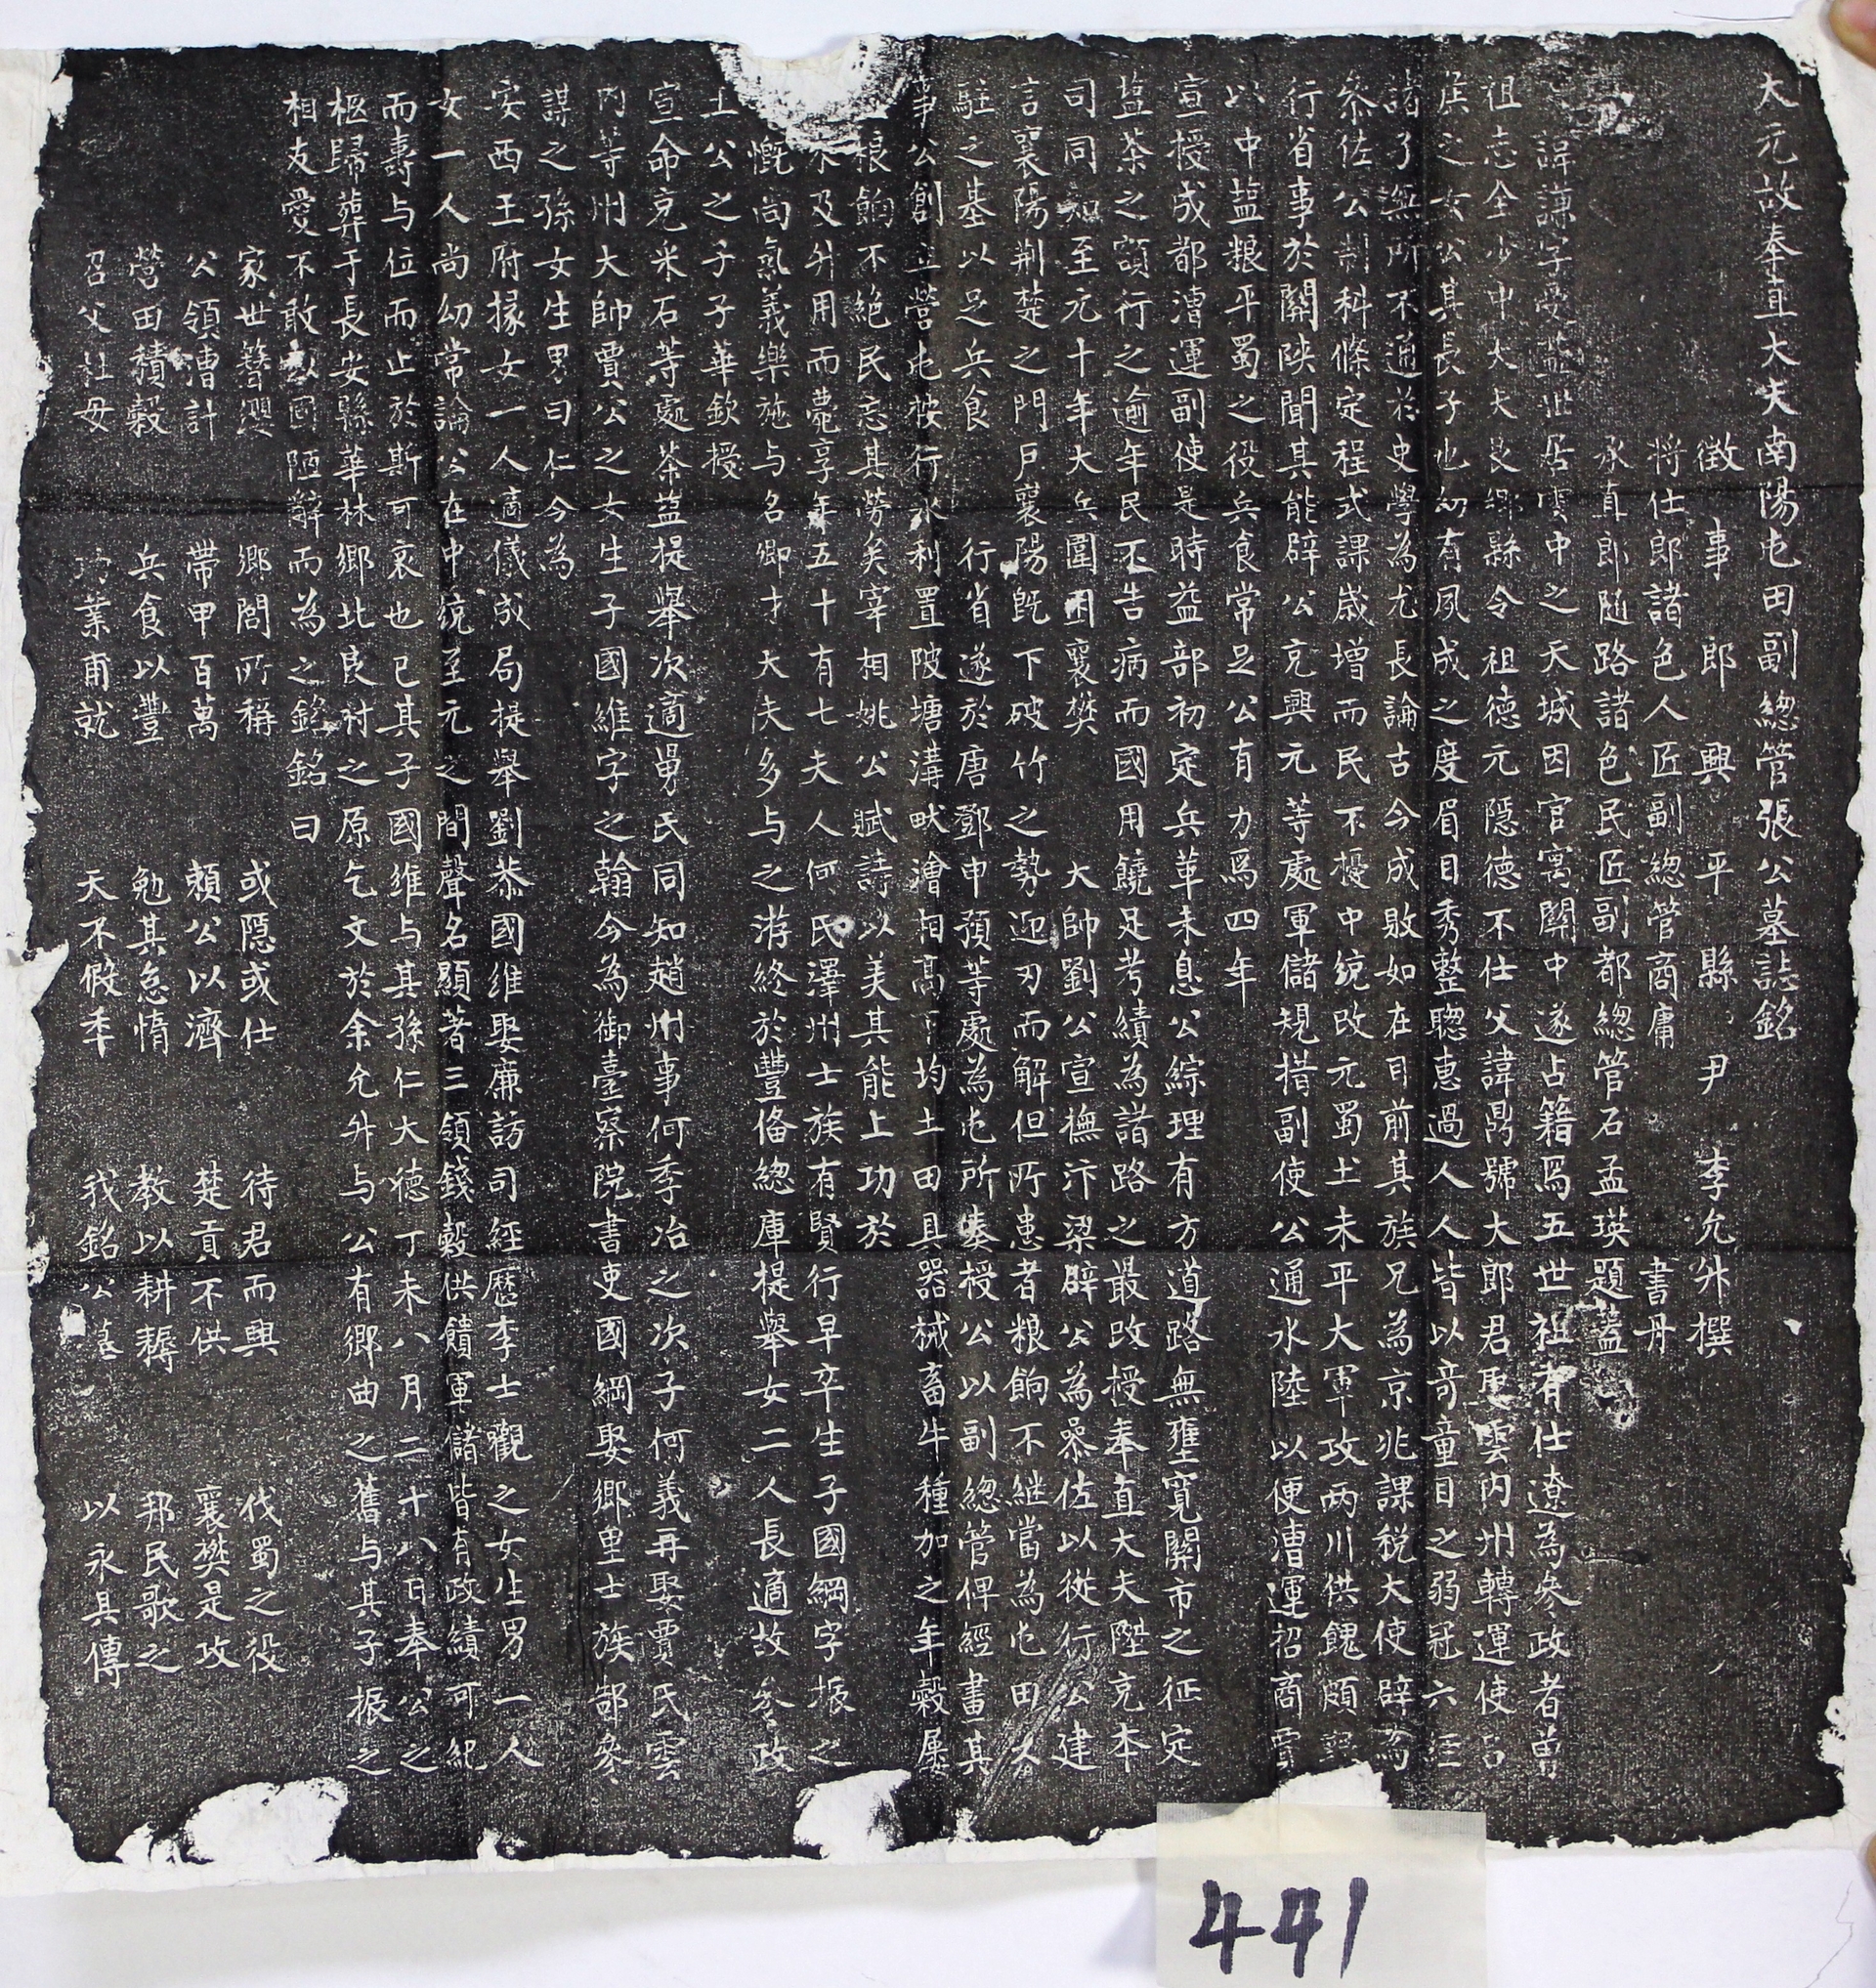 大元故奉直大夫南陽屯田副總管張公墓誌銘
徵事郎興平縣尹李允升撰
將仕郎諸色人匠副總管商庸書丹
承直郎隨路諸色民匠副都總管石孟瑛題蓋
諱謙字受益世居雲中之天城因官寓關中遂占籍焉五世祖有仕遼為參政者曾
祖志全少中大夫良鄉縣令祖德元隱德不仕父諱鼎號大郎君惠雲內州轉運使呂
侯之女公其長子也幼有夙成之度眉目秀整聰惠過人人皆以奇童目之弱冠六
諸子無所不通於史學為尤長論古今成敗如在目前其族兄為京兆課稅大使辟為
參佐公制科條定程式課歲增而民不擾中統改元蜀土未平大軍攻兩川供餽頗
行省事於關陝聞其能辟公充興元等處軍儲規措副使公通水陸以便漕運招商賈
以中鹽粮平蜀之役兵食常足公有力焉四年
宣授成都漕運副使是時益部初定兵革未息公綜理有方道路無壅寬關市之征定
鹽茶之額行之逾年民不告病而國用饒足考績為諸路之最改授奉直大夫陞充本
司同知至元十年大兵圍困襄樊大帥劉公宣撫汴梁辟公為參佐以從行公建
言襄陽荊楚之門戶襄陽既下破竹之勢迎刃而解但所患者粮餉不繼當為屯田
駐之基以足兵食行省遂於唐鄧申預等處為屯所奏授公以副總管俾經畫其
事公創立營屯按行水利置陂塘溝畎澮相高下均土田具器械畜牛種加之年穀屢
粮餉不絕民忘其勞矣宰相姚公賦詩以美其能上功於
及升用而薨享年五十有七夫人何氏澤州士族有賢行早卒生子國綱字振之
慨尚氣義樂施与名卿才大夫多与之游終於豐俻總庫提舉女二人長適故參政
土公之子子華欽授
宣命充米石等處茶鹽提舉次適舅氏同知趙州事何季冶之次子何義再娶賈氏雲
內等州大帥賈公之女生子國維字之翰今為御臺察院書吏國綱娶鄉里士族鄯參
謀之孫女生男曰仁今為
安西王府掾女一人適儀成局提舉劉恭國維娶廉訪司經歷李士觀之女生男一人
女一人尚幼常論公在中統至元之間聲名顯著三領錢穀供饋軍儲皆有政績可紀
而壽与位而止於斯可哀也已其子國維与其孫仁大德丁未八月二十八日奉公之
柩歸葬于長安縣華林鄉北良村之原乞文於余允升与公有鄉曲之舊与其子振之
相友愛不敢以固陋辭而為之銘銘曰
家世簪纓 鄉閭所稱 或隱或仕 待君而興 伐蜀之役
公領漕計 帶甲百萬 頼公以濟 楚貢不供 襄樊是攻
營田積穀 兵食以豐 勉其怠惰 教以耕耨 邦民歌之
召父杜母 功業甫就 天不假年 我銘公墓 以永具傳
441